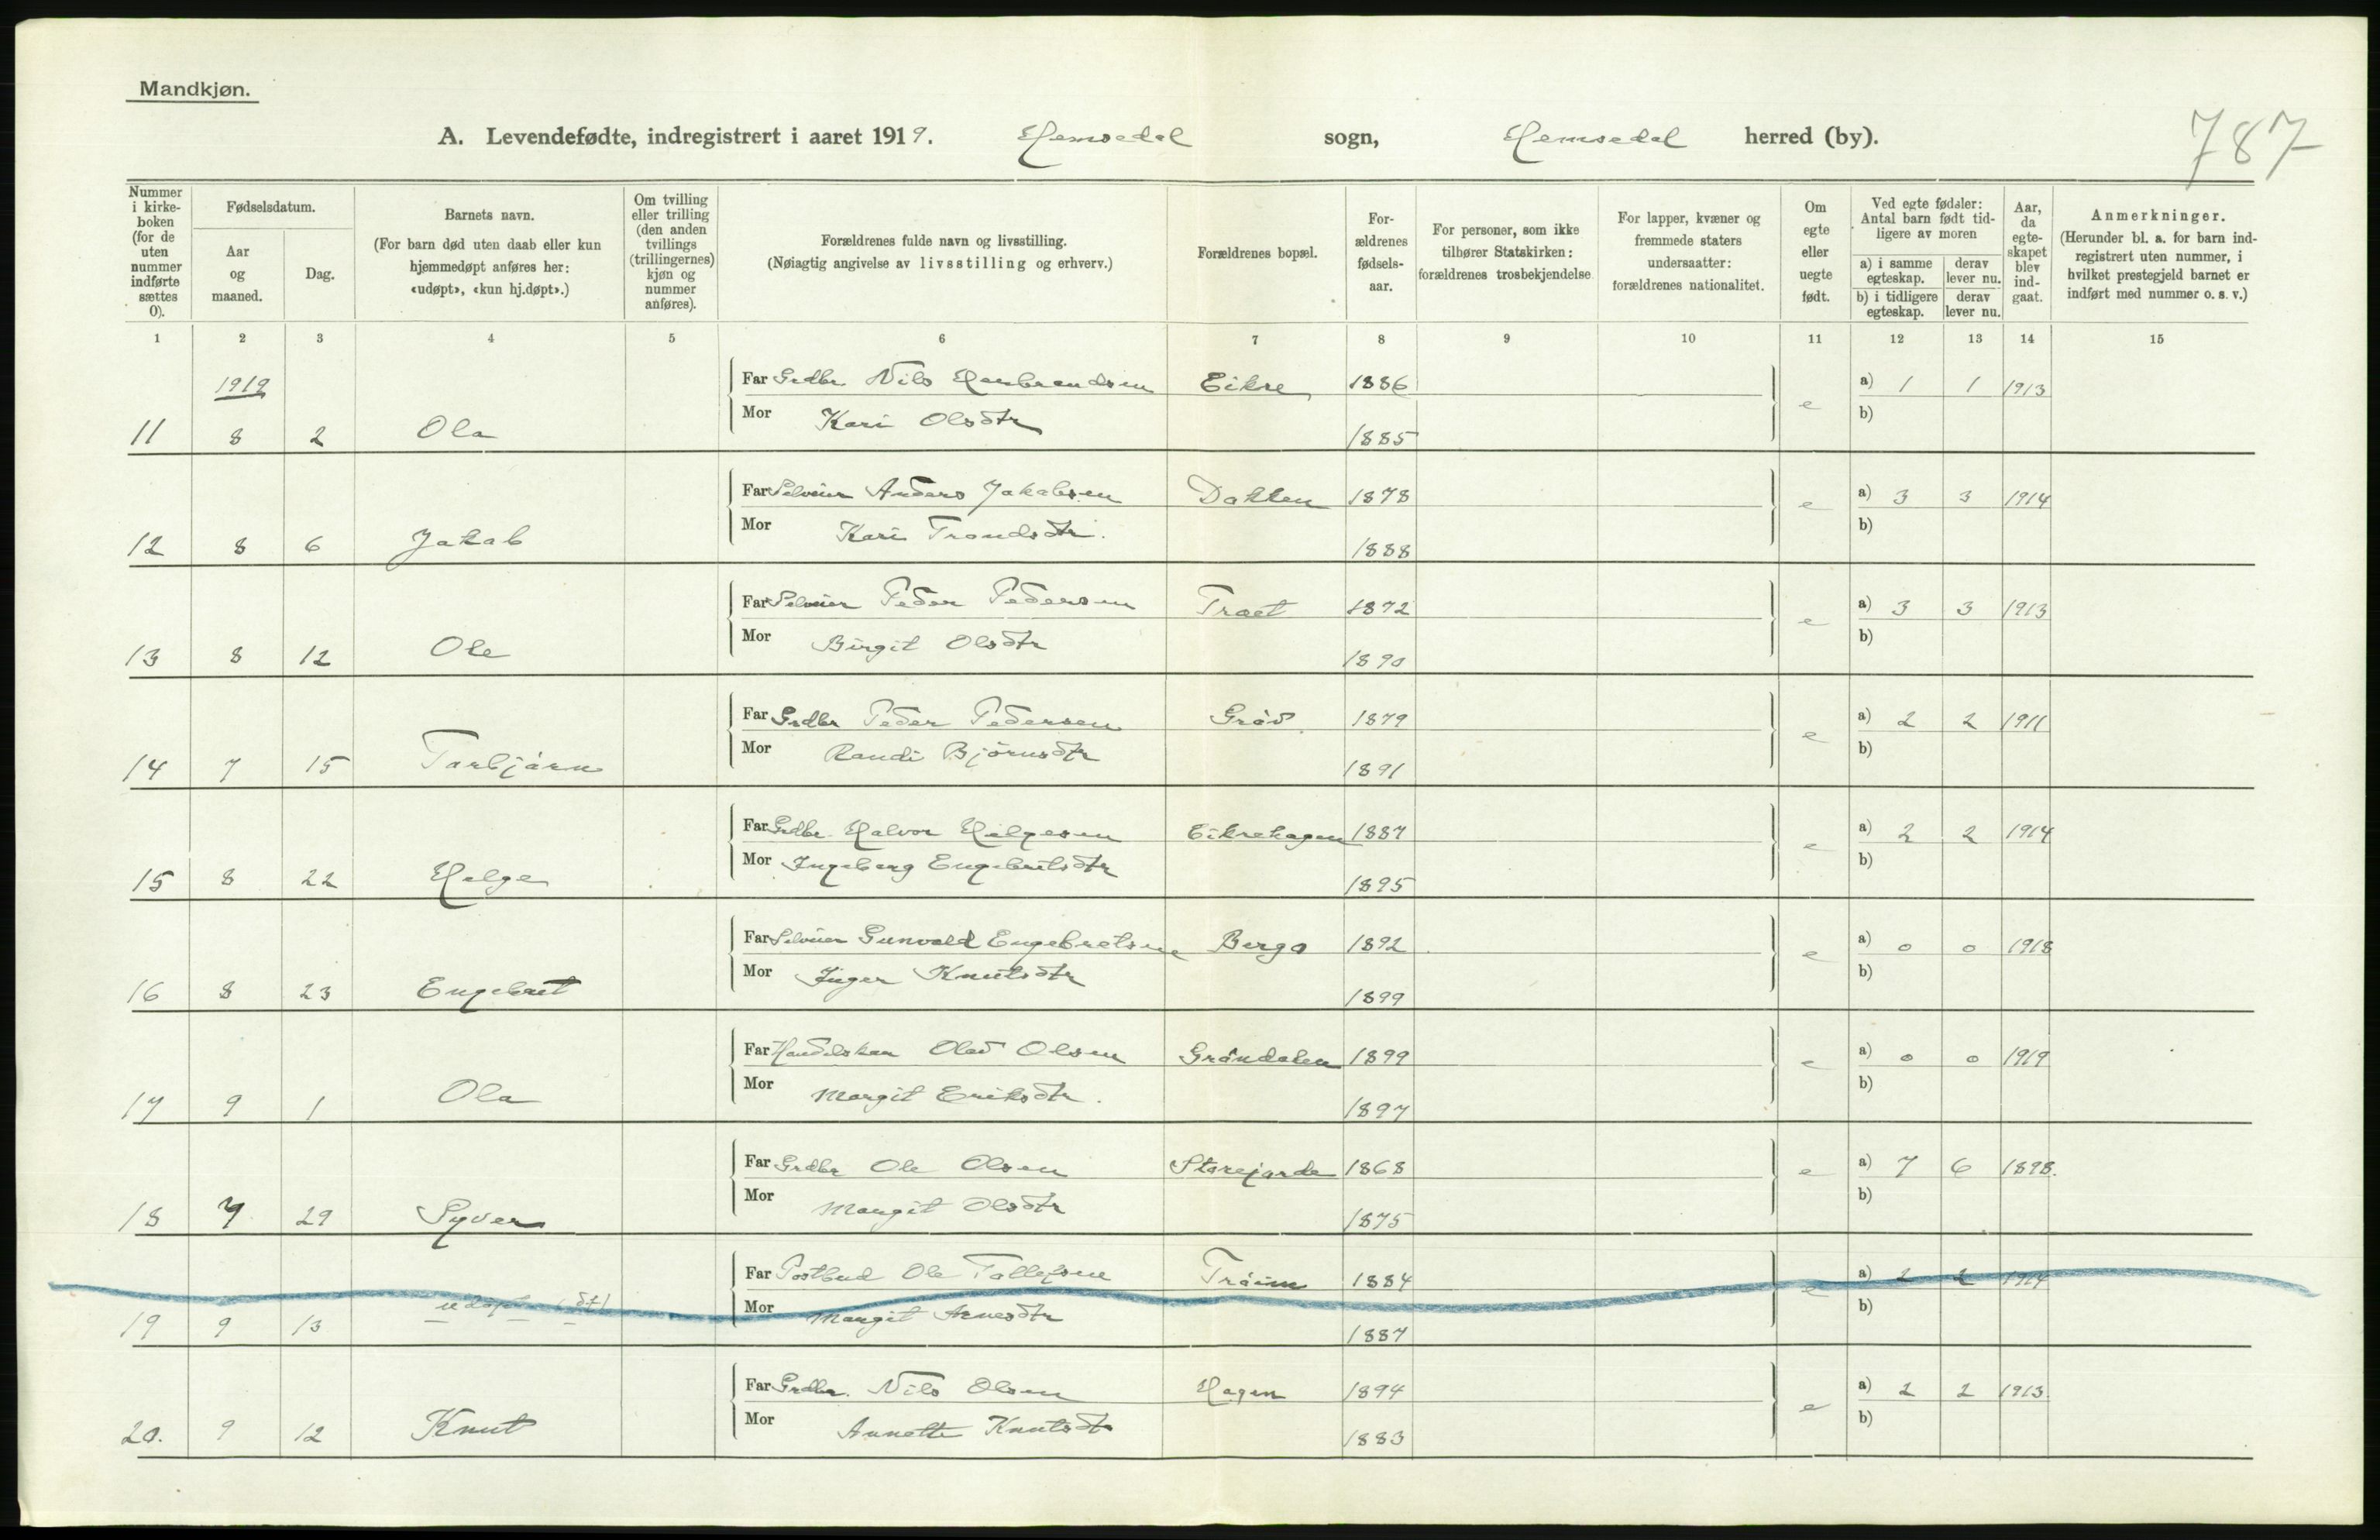 Mandkjøn.
787
A. Levendefødte, indregistrert i aaret 1919. Hemsedal sogn, Hemsedal herred (by).
Nummer i kirke-boken (for de uten nummer indførte sættes 0).
Fødselsdatum.
Aar og maaned.
Dag.
Barnets navn.
(For barn død uten daab eller kun hjemmedøpt anføres her: «udøpt», «kun hj.døpt».)
Om tvilling eller trilling (den anden tvillings (trillingernes) kjøn og nummer anføres).
Forældrenes fulde navn og livsstilling.
(Nøiagtig angivelse av livsstilling og erhverv.)
Forældrenes bopæl.
For-ældrenes fødsels-aar.
For personer, som ikke tilhører Statskirken: forældrenes trosbekjendelse.
For lapper, kvæner og fremmede staters undersaatter: forældrenes nationalitet.
Om egte eller uegte født.
Ved egte fødsler: Antal barn født tid-ligere av moren
a) i samme egteskap. derav lever nu.
b) i tidligere egteskap. derav lever nu.
Aar, da egte-skapet blev ind-gaat.
Anmerkninger.
(Herunder bl. a. for barn ind-registrert uten nummer, i hvilket prestegjeld barnet er indført med nummer o. s. v.)
1 2 3 4 5 6 7 8 9 10 11 12 13 14 15
1919
Far Grdbr Nils Herbrandsen Eikre 1886 e a) 1 1 1913
11 8 2 Ola Mor Kari Olsdtr 1885 b)
Far Selveier Anders Jakobsen Dokken 1878 e a) 3 3 1914
12 8 6 Jakob Mor Kari Trondsdtr. 1888 b)
Far Selveier Peder Pedersen Trøet 1872 e a) 3 3 1913
13 8 12 Ole Mor Birgit Olsdtr 1890 b)
Far Grdbr Peder Pedersen Grød 1879 e a) 2 2 1911
14 7 15 Torbjørn Mor Randi Bjørnsdtr 1891 b)
Far Grdbr Halvor Helgesen Eikrehagen 1887 e a) 2 2 1914
15 8 22 Helge Mor Ingeborg Engebretsdtr 1895 b)
Far Selveier Gunvald Engebretsen Bergo 1892 e a) 0 0 1918
16 8 23 Engebret Mor Inger Knutsdtr 1899 b)
Far Olav Olsen Grøndalen 1899 e a) 0 0 1919
17 9 1 Ola Mor Margit Eriksdtr. 1897 b)
Far Grdbr Ole Olsen Storejorde 1868 e a) 7 6 1898.
18 7 29 Syver Mor Margit Olsdtr 1875 b)
Far Postbud Ole Tollefsen Trøim 1884 e a) 2 2 1914
19 9 13 udøpt Mor Margit Arnesdtr 1887 b)
Far Grdbr. Nils Olsen Hagen 1894 e a) 2 2 1913
20. 9 12 Knut Mor Annette Knutsdtr 1883 b)